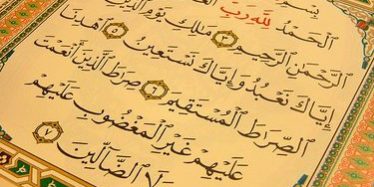 بِسْمِ
الْحَمْدُ لِلَّهِ رَبِّ
الرَّحْمَٰنِ الرَّحِيمِ ٣ مَالِكِ يَوْمِ الدِّينِ
إِيَّاكَ نَعْبُدُ وَإِيَّاكَ نَسْتَعِينُ ٥ اهْدِنَا
الصِّرَاطَ الْمُسْتَقِيمَ ٦ صِرَاطَ الَّذِينَ أَنْعَمْتَ
عَلَيْهِمْ غَيْرِ الْمَغْضُوبِ عَلَيْهِمْ
وَلَا الضَّالِّينَ ٧